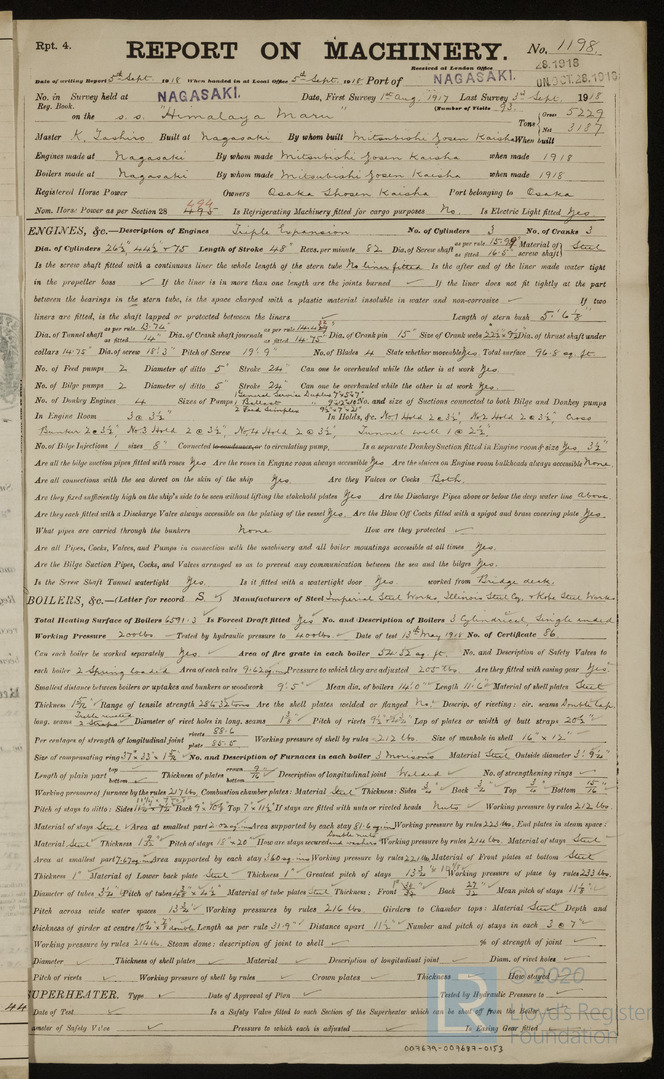 Rpt. 4.
REPORT ON MACHINERY. No. 1198
Received at London Office 28.1918
Date of writing Report 5th Sept. 1918 When handed in at Local Office 5th Sept. 1918 Port of NAGASAKI. MON. OCT. 28. 1918
No. in Survey held at NAGASAKI. Date, First Survey 1st Aug. 1917 Last Survey 3rd Sept. 1918
Reg. Book. (Number of Visits 93.
on the s.s. "Himalaya Maru" Tons Gross 5229 Net 3187
Master K. Tashiro Built at Nagasaki By whom built Mitsubishi Zosen Kaisha When built
Engines made at Nagasaki By whom made Mitsubishi Zosen Kaisha when made 1918
Boilers made at Nagasaki By whom made Mitsubishi Zosen Kaisha when made 1918
Registered Horse Power Owners Osaka Shosen Kaisha Port belonging to Osaka
Nom. Horse Power as per Section 28 494 495 Is Refrigerating Machinery fitted for cargo purposes No. Is Electric Light fitted Yes
ENGINES, &c.—Description of Engines Triple Expansion No. of Cylinders 3 No. of Cranks 3
Dia. of Cylinders 26½", 44½" & 75 Length of Stroke 48" Revs. per minute 82 Dia. of Screw shaft as per rule 15.99" as fitted 16.5" Material of screw shaft Steel
Is the screw shaft fitted with a continuous liner the whole length of the stern tube No liner fitted Is the after end of the liner made water tight
in the propeller boss ✓ If the liner is in more than one length are the joints burned ✓ If the liner does not fit tightly at the part
between the bearings in the stern tube, is the space charged with a plastic material insoluble in water and non-corrosive ✓ If two
liners are fitted, is the shaft lapped or protected between the liners ✓ Length of stern bush 5'.6⅞"
Dia. of Tunnel shaft as per rule 13.74" as fitted 14" Dia. of Crank shaft journals as per rule 14.43" as fitted 14.75" Dia. of Crank pin 15" Size of Crank webs Dia. of thrust shaft under
collars 14.75" Dia. of screw 18'.3" Pitch of Screw 19'.9" No. of Blades 4 State whether moveable Yes. Total surface 96.8 sq. ft.
No. of Feed pumps 2 Diameter of ditto 5" Stroke 24" Can one be overhauled while the other is at work Yes.
No. of Bilge pumps 2 Diameter of ditto 5" Stroke 24" Can one be overhauled while the other is at work Yes.
No. of Donkey Engines 4 Sizes of Pumps 1 General Service Duplex 1 Ballast 2 Feed Simplex No. and size of Suctions connected to both Bilge and Donkey pumps
In Engine Room 3 @ 3½" In Holds, &c. No. 1 Hold 2 @ 3½", No. 2 Hold 2 @ 3½", Cross
Bunker 2 @ 3½", No. 3 Hold 2 @ 3½", No. 4 Hold 2 @ 3½", Tunnel well 1 @ 2½"
No. of Bilge Injections 1 sizes 8" Connected to condenser, or to circulating pump, Is a separate Donkey Suction fitted in Engine room & size Yes. 3½"
Are all the bilge suction pipes fitted with roses Yes Are the roses in Engine room always accessible Yes Are the sluices on Engine room bulkheads always accessible None
Are all connections with the sea direct on the skin of the ship Yes. Are they Valves or Cocks Both.
Are they fixed sufficiently high on the ship's side to be seen without lifting the stokehold plates Yes Are the Discharge Pipes above or below the deep water line above.
Are they each fitted with a Discharge Valve always accessible on the plating of the vessel Yes. Are the Blow Off Cocks fitted with a spigot and brass covering plate Yes.
What pipes are carried through the bunkers None How are they protected ✓
Are all Pipes, Cocks, Valves, and Pumps in connection with the machinery and all boiler mountings accessible at all times Yes.
Are the Bilge Suction Pipes, Cocks, and Valves arranged so as to prevent any communication between the sea and the bilges Yes.
Is the Screw Shaft Tunnel watertight Yes. Is it fitted with a watertight door Yes worked from Bridge deck.
BOILERS, &c.—(Letter for record S.) Manufacturers of Steel Imperial Steel Works, Illinois Steel Coy, & Kobe Steel Works
Total Heating Surface of Boilers 6591.3 Is Forced Draft fitted Yes No. and Description of Boilers 3 Cylindrical, Single ended
Working Pressure 200 lbs. Tested by hydraulic pressure to 400 lbs. Date of test 13th May 1918 No. of Certificate 86.
Can each boiler be worked separately Yes. Area of fire grate in each boiler 52.52 sq. ft. No. and Description of Safety Valves to
each boiler 2 Spring loaded Area of each valve 9.62 sq. in. Pressure to which they are adjusted 205 lbs. Are they fitted with easing gear Yes.
Smallest distance between boilers or uptakes and bunkers or woodwork 9'.5" Mean dia. of boilers 14'.0" Length 11'.6" Material of shell plates Steel
Thickness Range of tensile strength 28&32 tons Are the shell plates welded or flanged No Descrip. of riveting: cir. seams Double lap.
long. seams Treble riveted 2 Straps Diameter of rivet holes in long. seams Pitch of rivets Lap of plates or width of butt straps 20½"
Per centages of strength of longitudinal joint rivets 88.6 plate 85.5 Working pressure of shell by rules 212 lbs. Size of manhole in shell 16" × 12"
Size of compensating ring No. and Description of Furnaces in each boiler 3 Morisons Material Steel Outside diameter
Length of plain part top bottom Thickness of plates crown bottom Description of longitudinal joint Welded No. of strengthening rings
Working pressure of furnace by the rules 217 lbs. Combustion chamber plates: Material Steel Thickness: Sides Back Top Bottom
Pitch of stays to ditto: Sides Back Top If stays are fitted with nuts or riveted heads Nuts Working pressure by rules 212 lbs.
Material of stays Steel Area at smallest part 2.02 sq. in. Area supported by each stay 81.6 sq. in. Working pressure by rules 223 lbs. End plates in steam space:
Material Steel Thickness Pitch of stays 18" × 20" How are stays secured Double nuts and washers Working pressure by rules 214 lbs. Material of stays Steel
Area at smallest part 7.67 sq. in. Area supported by each stay 360 sq. in. Working pressure by rules 221 lbs. Material of Front plates at bottom Steel
Thickness 1" Material of Lower back plate Steel Thickness 1" Greatest pitch of stays Working pressure of plate by rules 233 lbs.
Diameter of tubes Pitch of tubes Material of tube plates Steel Thickness: Front Back 27/32" Mean pitch of stays
Pitch across wide water spaces 13¾" Working pressures by rules 216 lbs. Girders to Chamber tops: Material Steel Depth and
thickness of girder at centre Length as per rule 31.9" Distance apart 11½" Number and pitch of stays in each 3 @ 7"
Working pressure by rules 214 lbs. Steam dome: description of joint to shell ✓ % of strength of joint ✓
Diameter Thickness of shell plates Material Description of longitudinal joint Diam. of rivet holes
Pitch of rivets Working pressure of shell by rules Crown plates Thickness How stayed
SUPERHEATER. Type Date of Approval of Plan Tested by Hydraulic Pressure to
Date of Test Is a Safety Valve fitted to each Section of the Superheater which can be shut off from the Boiler
ameter of Safety Valve Pressure to which each is adjusted Is Easing Gear fitted
44
© 2020
Lloyd's Register
Foundation
007679-007687-0153